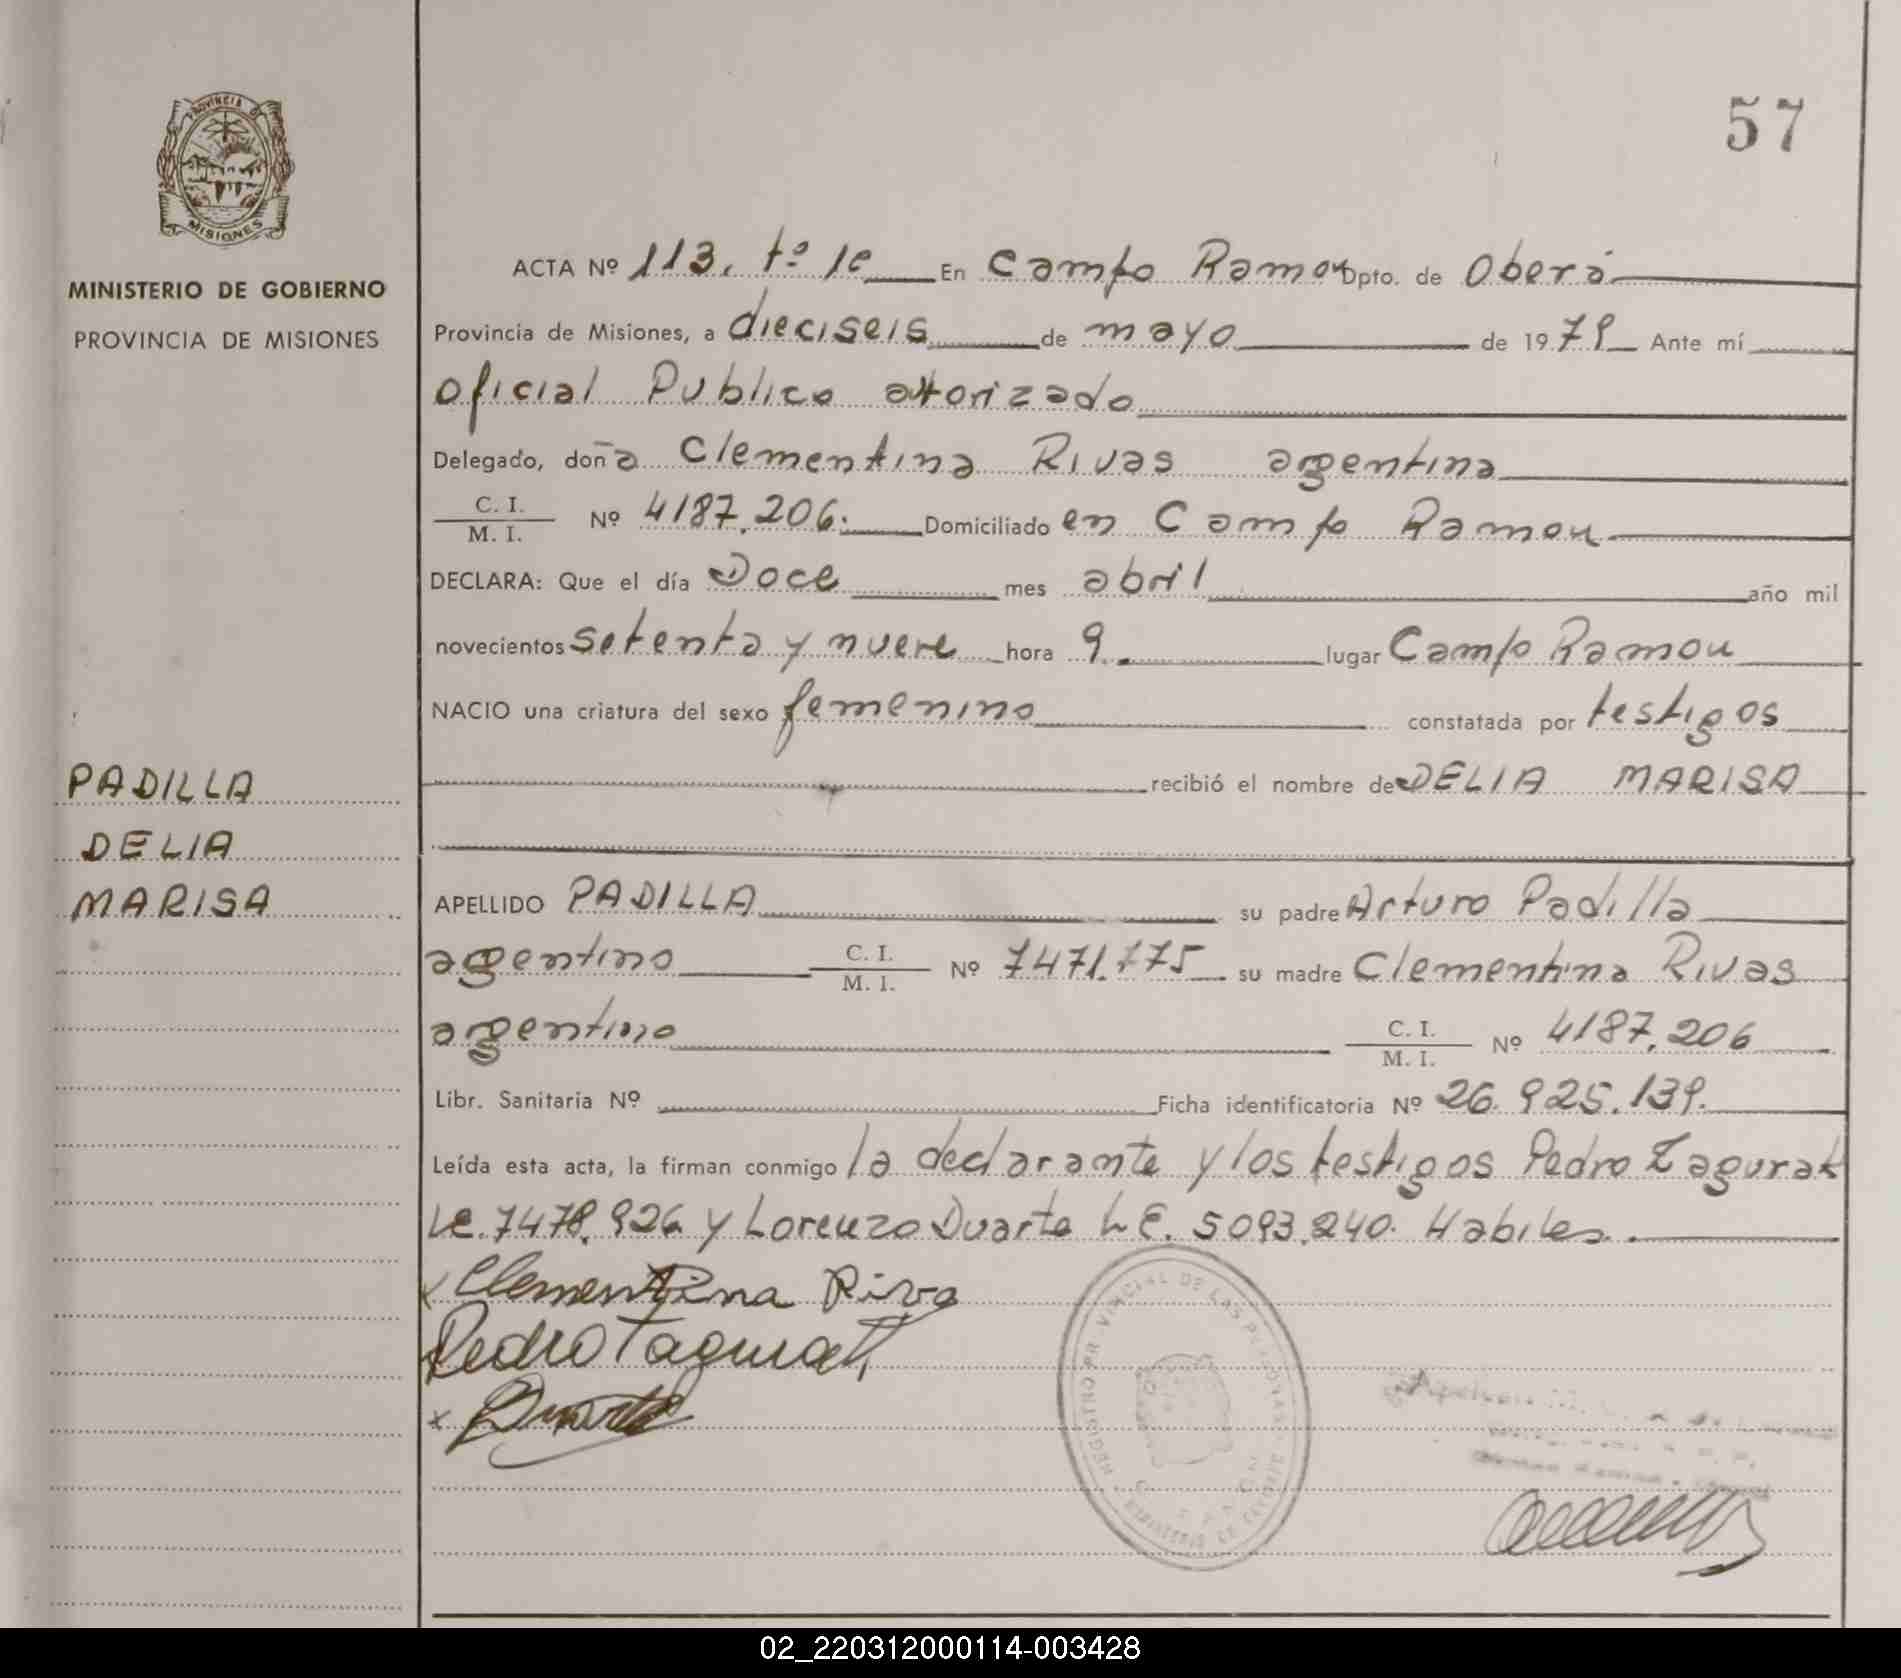 57
PROVINCIA D
MISIONES
MINISTERIO DE GOBIERNO
PROVINCIA DE MISIONES
ACTA Nº 113. tº 1º En Campo Ramon Dpto. de Oberá
Provincia de Misiones, a dieciseis de mayo de 1979 Ante mí
oficial Publico autorizado
Delegado, doña Clementina Rivas argentina
C. I.
M. I. Nº 4187.206. Domiciliado en Campo Ramon
DECLARA: Que el día Doce mes abril año mil
novecientos setenta y nueve hora 9. lugar Campo Ramon
NACIO una criatura del sexo femenino constatada por testigos
recibió el nombre de DELIA MARISA
PADILLA
DELIA
MARISA
APELLIDO PADILLA su padre Arturo Padilla
argentino C. I. M. I. Nº 7471.775 su madre Clementina Rivas
argentino C. I. M. I. Nº 4187.206
Libr. Sanitaria Nº Ficha identificatoria Nº 26.925.139.
Leída esta acta, la firman conmigo la declarante y los testigos Pedro Zagurak
LE. 7478.926 y Lorenzo Duarte L E. 5093.240. Habiles.
x Clementina Riva
Pedro Tagurak
x Duarte
REGISTRO PROVINCIAL DE LAS PERSONAS
MINISTERIO DE GOBIERNO
02_220312000114-003428